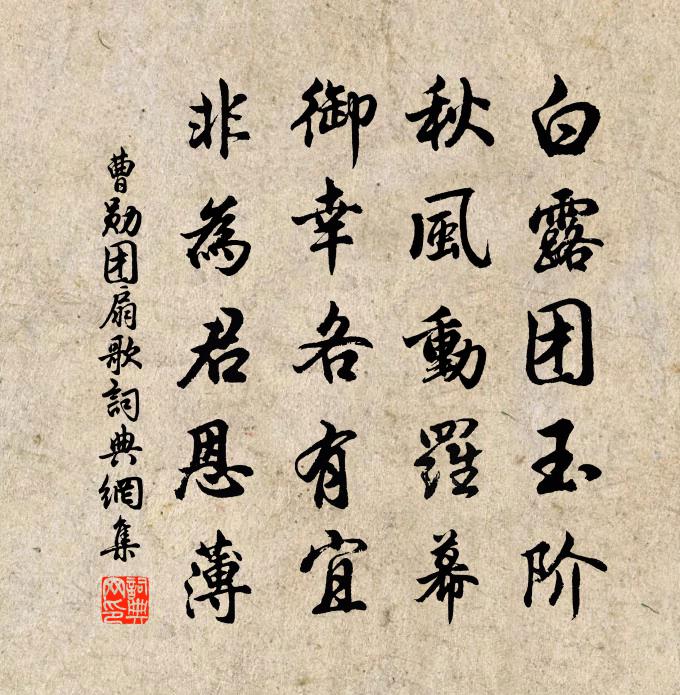 白露团玉阶
秋風動羅幕
御幸各有宜
非為君恩薄
曹勛团扇歌詞典網集
詞典网印